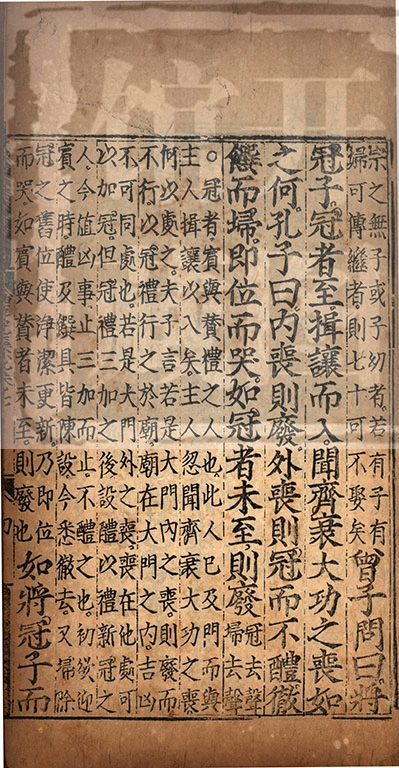 宗之無子或子幼者若有子有
婦可傳繼者則七十可不娶矣曾子問曰將
冠子冠者至揖讓而入聞齊衰大功之喪如
之何孔子曰內喪則廢外喪則冠而不醴徹
饌而埽即位而哭如冠者未至則廢冠去聲
埽去聲
。冠者賓與贊禮之人也此人已及門而與
主人揖讓以入矣主人忽聞齊衰大功之喪
何以處之夫子言若是大門內之喪則廢而
不行以冠禮行之於廟廟在大門之內吉凶
不可同處也若是大門外之喪喪在他處可
以加冠但冠禮三加之後設醴以禮新冠之
人今值凶事止三加而止不醴之也初欲迎
賓之時醴及饌具皆陳設今悉徹去又埽除
冠之舊位使淨潔更新乃即位
而哭如賓與贊者未至則廢也如將冠子而